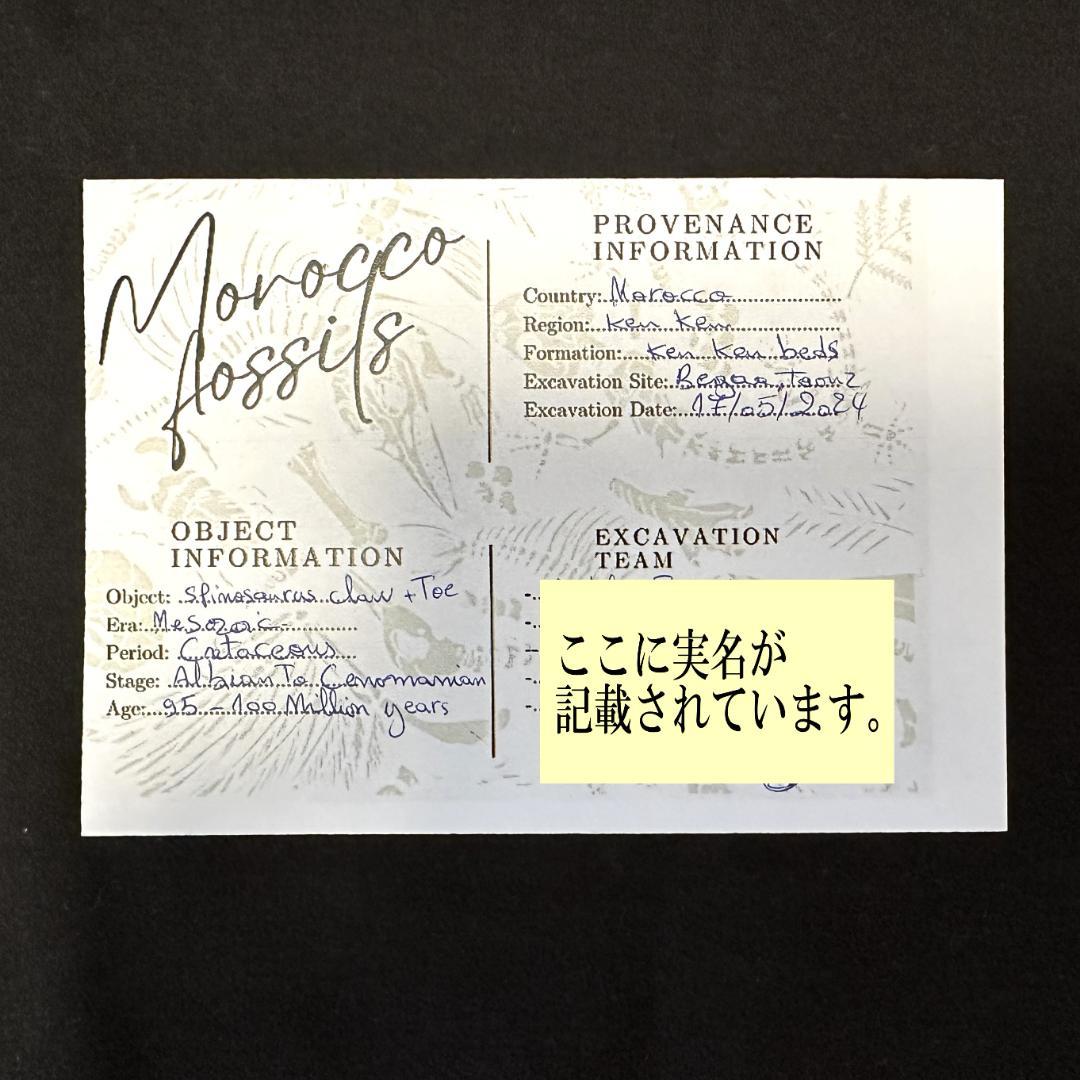 Morocco
fossils
PROVENANCE
INFORMATION
Country: Morocco
Region: Kem Kem
Formation: Kem Kem beds
Excavation Site: Begaa Taouz
Excavation Date: 17/05/2024
OBJECT
INFORMATION
Object: Spinosaurus claw + Toe
Era: Mesozoic
Period: Cretaceous
Stage: Albian To Cenomanian
Age: 95 - 100 Million years
EXCAVATION
TEAM
ここに実名が
記載されています。